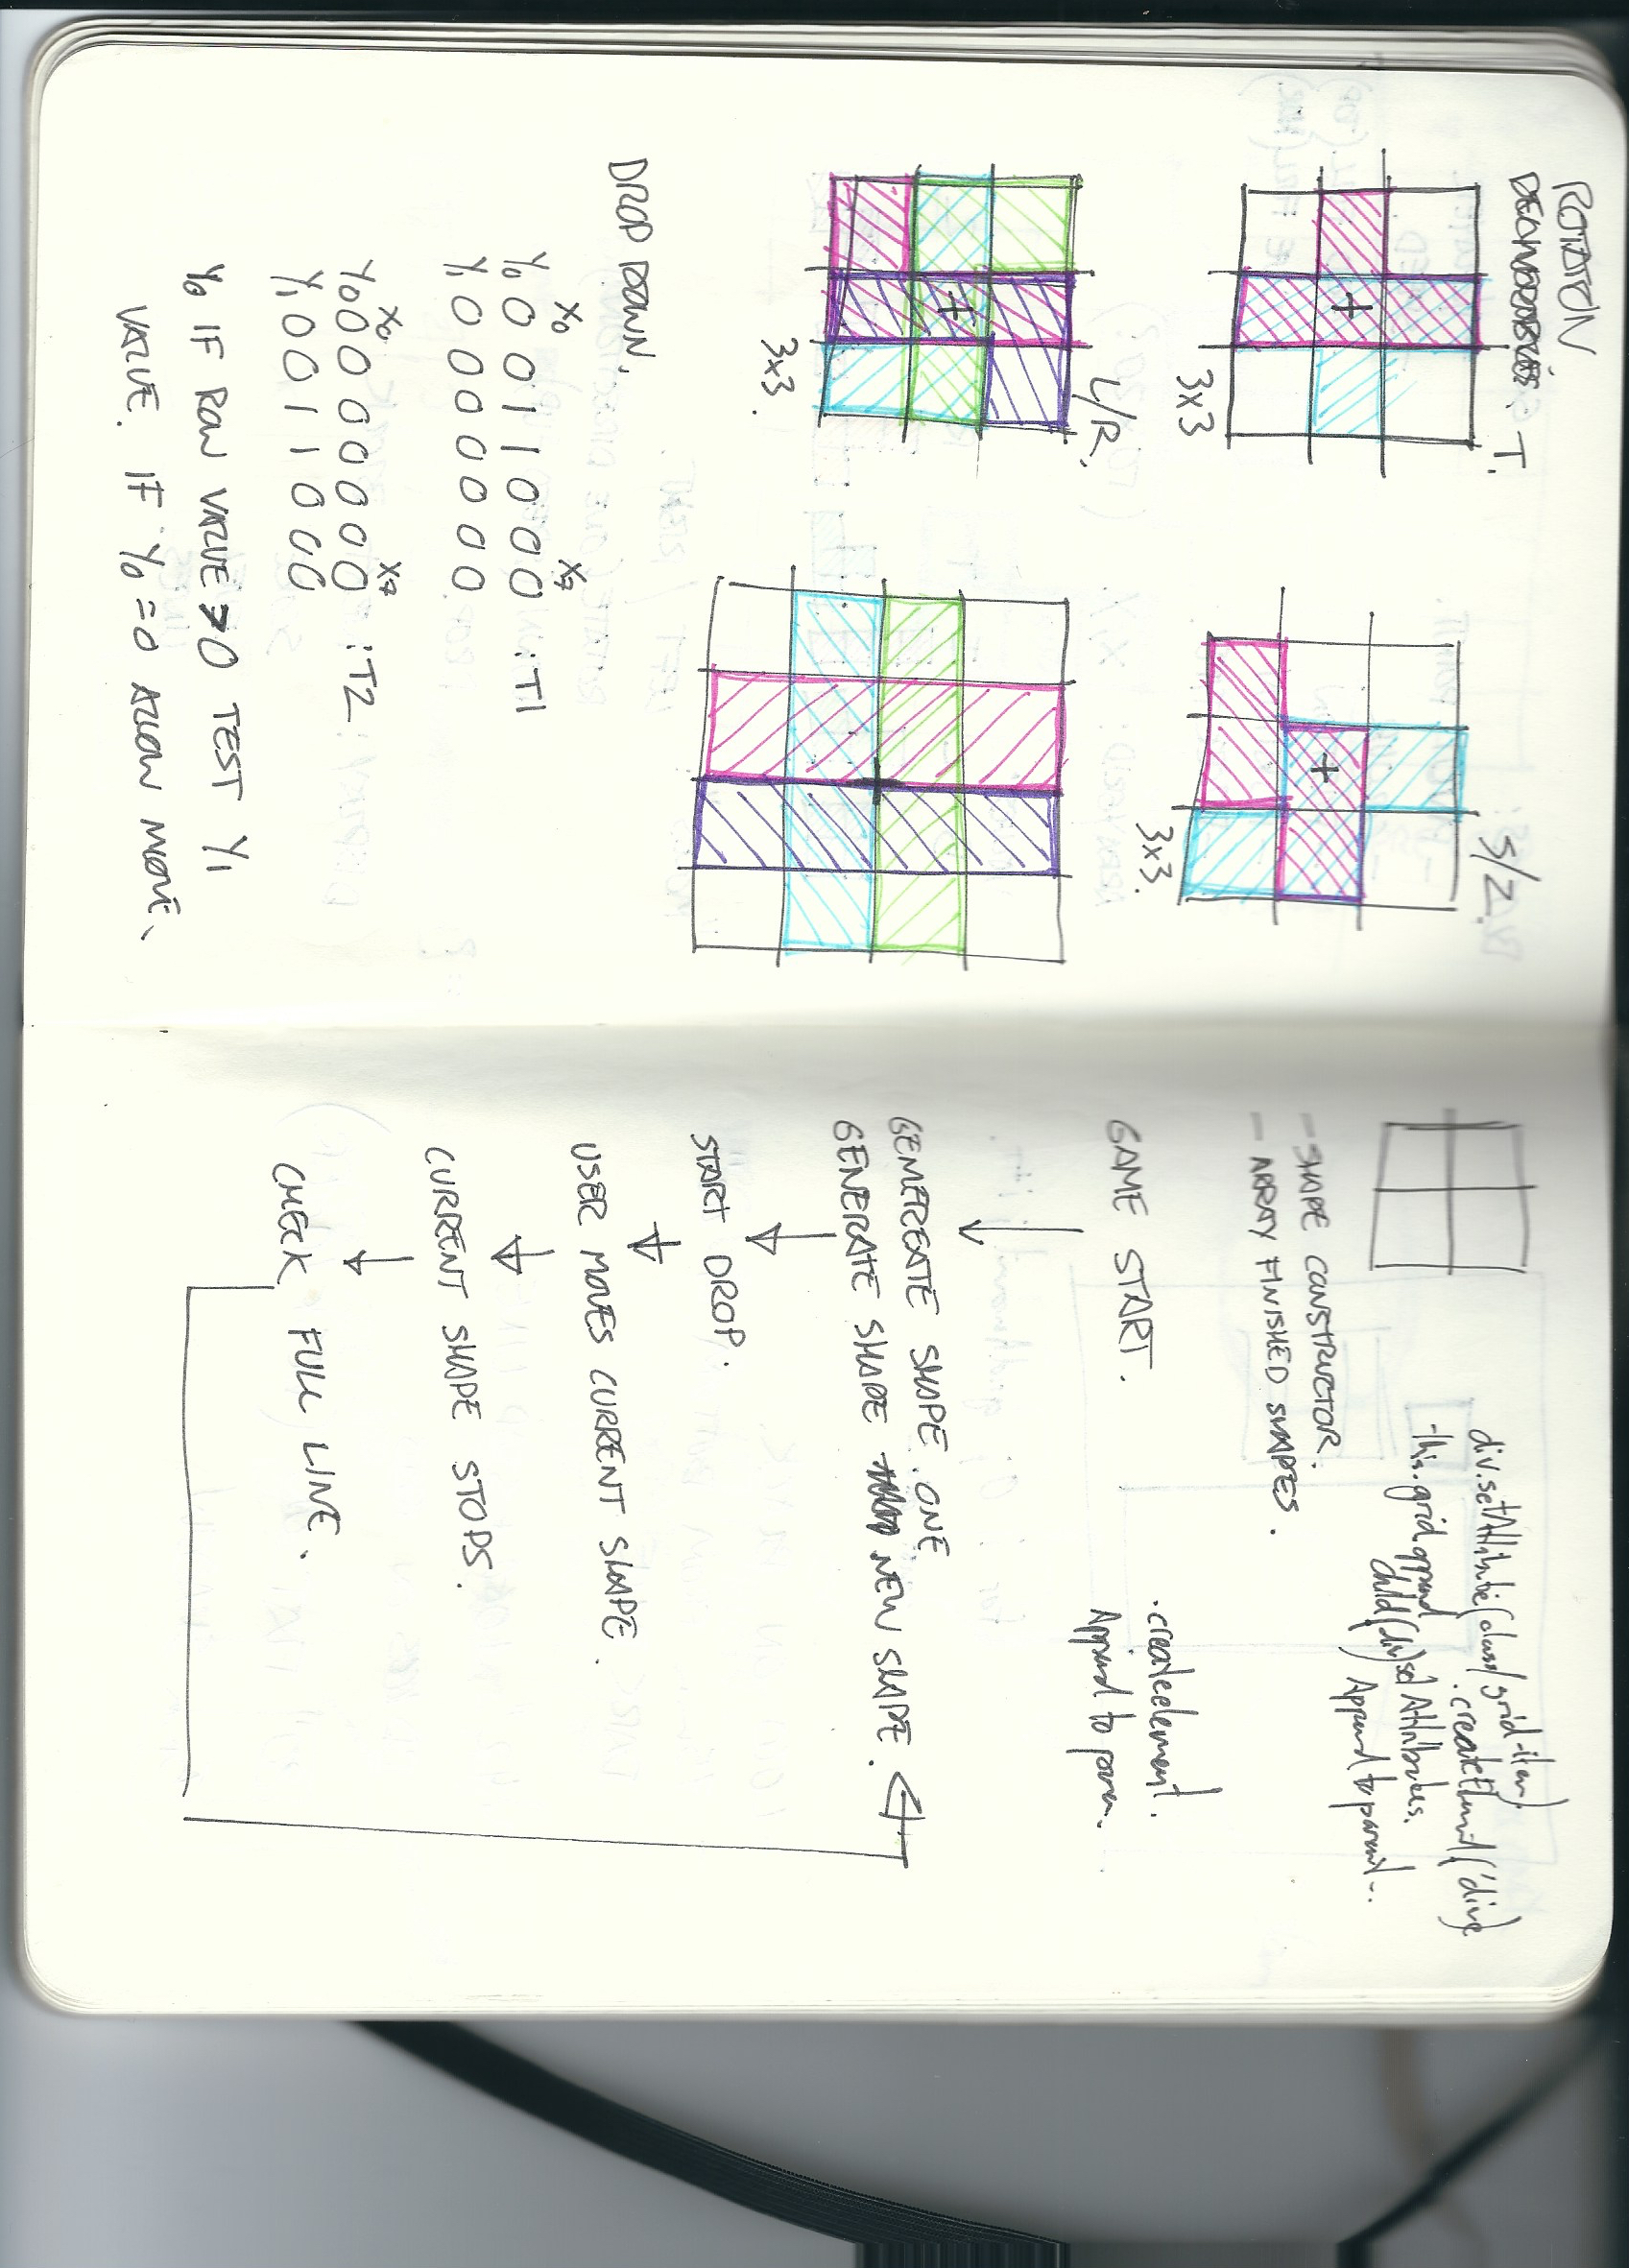 ROTATION
T.
3x3
S/Z.
3x3.
L/R.
3x3.
DROP DOWN.
X0 X7
Y0 0 0 1 1 0 0 0 : T1
Y1 0 0 0 0 0 0 0
X0 X7
Y0 0 0 0 0 0 0 0 : T2
Y1 0 0 1 1 0 0 0
Y0 IF ROW VALUE > 0 TEST Y1
VALUE. IF Y0 = 0 ALLOW MOVE.
div.setAttribute(class/grid-item)
.createElement('div')
this.grid.append
child(div) set Attributes.
Append to parent.
- SHAPE CONSTRUCTOR.
- ARRAY FINISHED SHAPES.
.createelement.
Append to paren.
GAME START.
GENEREATE SHAPE ONE
GENERATE SHAPE NEW SHAPE.
START DROP.
USER MOVES CURRENT SHAPE.
CURRENT SHAPE STOPS.
CHECK FULL LINE.